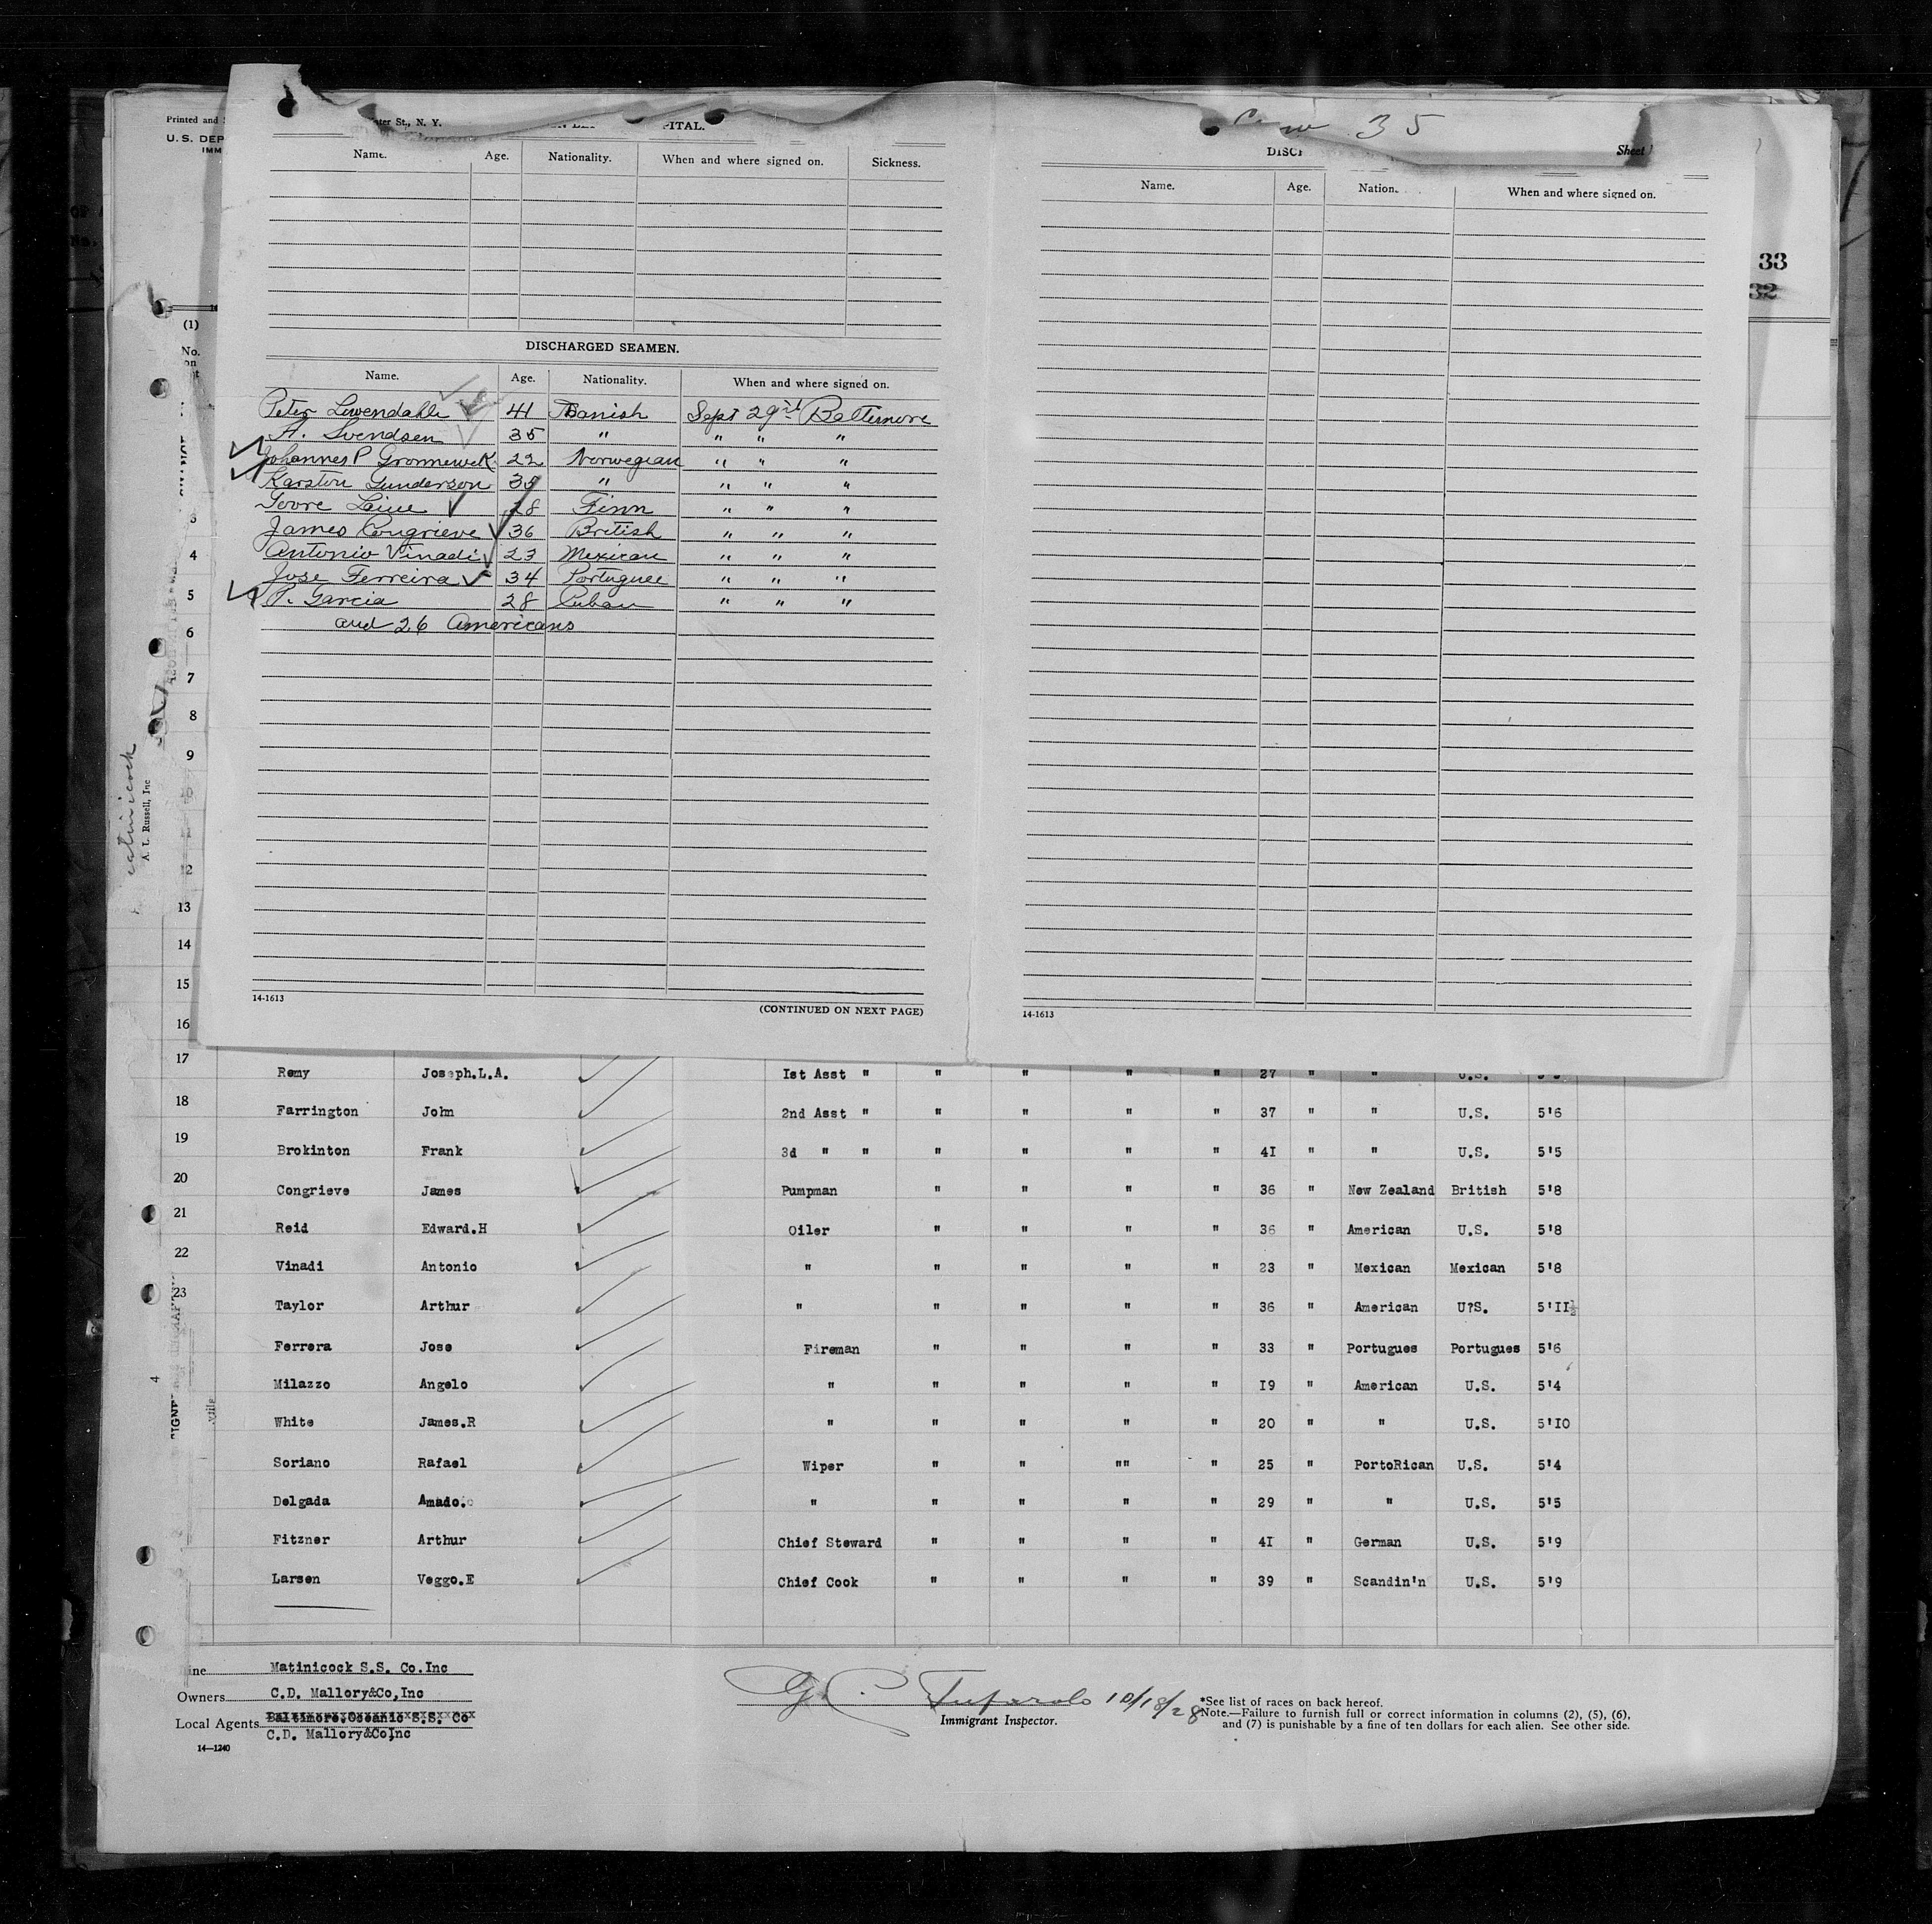 Printed and
U.S. DEP
IMM
(1)
No.
on
ter St., N. Y.
PITAL.
Name. Age. Nationality. When and where signed on. Sickness.
DISCHARGED SEAMEN.
Name. Age. Nationality. When and where signed on.
Peter Lewendahl 41 Danish Sept 29th Baltimore
A. Svendsen 35 " " " "
Johannes P Gronnewek 22 Norwegian " " "
Karsten Gunderson 35 " " " "
Toore Laine 28 Finn " " "
James Congrieve 36 British " " "
Antonio Vinadi 23 Mexican " " "
Jose Ferreira 34 Portuguee " " "
P. Garcia 28 Cuban " " "
and 26 Americans
14-1613
(CONTINUED ON NEXT PAGE)
Crew 35
DISCH
Sheet
Name. Age. Nation. When and where signed on.
14-1613
33
32
3
4
5
6
7
8
9
12
13
14
15
16
A. L. Russell, Inc
17 Remy Joseph.L.A. Ist Asst " " " " " 27 " " U.S.
18 Farrington John 2nd Asst " " " " " 37 " " U.S. 5'6
19 Brokinton Frank 3d " " " " " " 4I " " U.S. 5'5
20 Congrieve James Pumpman " " " " 36 " New Zealand British 5'8
21 Reid Edward.H Oiler " " " " 36 " American U.S. 5'8
22 Vinadi Antonio " " " " " 23 " Mexican Mexican 5'8
23 Taylor Arthur " " " " " 36 " American U?S. 5'II½
Ferrera Jose Fireman " " " " 33 " Portugues Portugues 5'6
4 Milazzo Angelo " " " " " I9 " American U.S. 5'4
White James.R " " " " " 20 " " U.S. 5'IO
Soriano Rafael Wiper " " "" " 25 " PortoRican U.S. 5'4
Delgada Amado. " " " " " 29 " " U.S. 5'5
Fitzner Arthur Chief Steward " " " " 4I " German U.S. 5'9
Larsen Veggo.E Chief Cook " " " " 39 " Scandin'n U.S. 5'9
ine Matinicock S.S. Co.Inc
Owners C.D. Mallory&Co,Inc
Local Agents Baltimore.Oceanic S.S. Co
C.D. Mallory&Co,Inc
14—1240
10/18/28
Immigrant Inspector.
*See list of races on back hereof.
Note.—Failure to furnish full or correct information in columns (2), (5), (6),
and (7) is punishable by a fine of ten dollars for each alien. See other side.